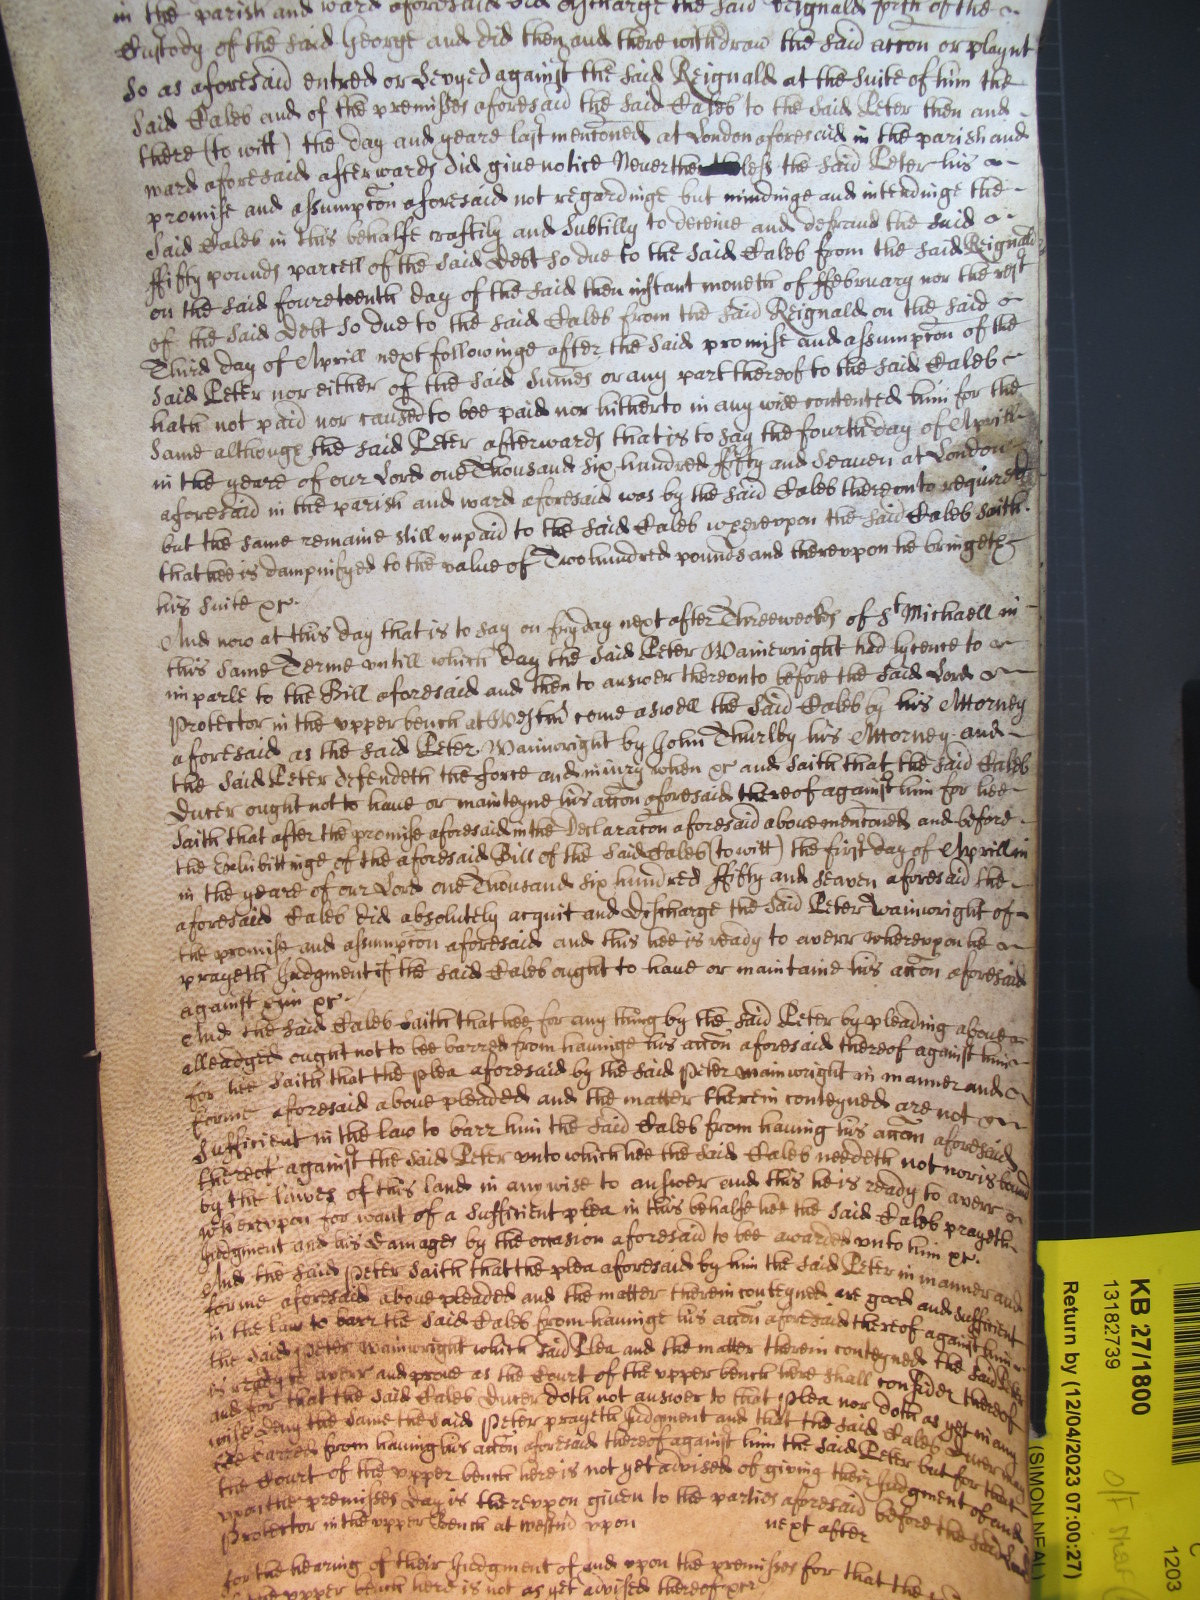 in the parish and ward aforesaid did discharge the said Reignald forth of the
Custody of the said George and did then and there withdraw the said accon or playnt
so as aforesaid entred or Levyed against the said Reignald at the suite of him the
said Caleb and of the premisses aforesaid the said Caleb to the said Peter then and
there (to witt) the day and yeare last menconed at London aforesaid in the parish and
ward aforesaid afterwards did give notice Neverthe less the said Peter his
promise and assumpcon aforesaid not regardinge but mindinge and intendinge the
said Caleb in this behalfe craftily and subtilly to deceive and defraud the said
ffifty pounds parcell of the said Debt so due to the said Caleb from the said Reignald
on the said fourteenth day of the said then instant moneth of ffebruary nor the rest
of the said Debt so due to the said Caleb from the said Reignald on the said
Third day of Aprill next followinge after the said promise and assumpcon of the
said Peter nor either of the said sumes or any part thereof to the said Caleb
hath not paid nor caused to bee paid nor hitherto in any wise contented him for the
same although the said Peter afterwards that is to say the fourth day of Aprill
in the yeare of our Lord one Thousand six hundred ffifty and seaven at London
aforesaid in the parish and ward aforesaid was by the said Caleb thereonto required
but the same remaine still unpaid to the said Caleb wherevpon the said Caleb saith
that hee is dampnifyed to the value of Two hundred pounds and therevpon he bringeth
his suite xc.
And now at this day that is to say on fryday next after Three weekes of St Michaell in
this same Terme vntill which day the said Peter Wainewright had lycence to
imparle to the Bill aforesaid and then to answer thereonto before the said Lord
Protector in the vpper bench at Westm come aswell the said Caleb by his Attorney
aforesaid as the said Peter Wainwright by John Thurlby his Attorney and
the said Peter defendeth the force and iniury when xc and saith that the said Caleb
Ducer ought not to have or mainteyne his accon aforesaid thereof against him for hee
saith that after the promise aforesaid in the Declaracon aforesaid above menconed and before
the exhibittinge of the aforesaid Bill of the said Caleb (to witt) the first day of Aprill in
in the yeare of our Lord one Thousand six hundred ffifty and seaven aforesaid the
aforesaid Caleb did absolutely acquit and discharge the said Peter Wainwright of
the promise and assumpcon aforesaid and this hee is ready to averr wherevpon he
prayeth Judgment if the said Caleb ought to have or maintaine his accon aforesaid
against him xc.
And the said Caleb saith that hee for any thing by the said Peter by pleading above
alleadged ought not to bee barred from havinge his accon aforesaid thereof against him
for hee saith that the plea aforesaid by the said Peter Wainwright in manner and
forme aforesaid above pleaded and the matter therein conteyned are not
sufficient in the law to barr him the said Caleb from having his accon aforesaid
thereof against the said Peter vnto which hee the said Caleb needeth not nor is bound
by the lawes of this land in any wise to answer and this he is ready to averr
wherevpon for want of a sufficient plea in this behalfe hee the said Caleb prayeth
Judgment and his damages by the occasion aforesaid to bee awarded vnto him xc.
And the said Peter saith that the plea aforesaid by him the said Peter in manner and
forme aforesaid above pleaded and the matter therein conteyned are good and sufficient
in the law to barr the said Caleb from havinge his accon aforesaid thereof against him
the said Peter Wainwright which said Plea and the matter therein conteyned the said Peter
is ready to averr and prove as the Court of the vpper bench here shall consider thereof
and for that the said Caleb Ducer doth not answer to that Plea nor doth as yet in any
wise deny the same the said Peter prayeth Judgment and that the said Caleb Ducer may
bee barred from having his accon aforesaid thereof against him the said Peter but for that
the Court of the vpper bench here is not yet advised of giving their Judgment of and
vpon the premisses day is therevpon given to the parties aforesaid before the said Lord
Protector in the vpper Bench at Westm vpon next after
for the hearing of their Judgment of and vpon the premisses for that the
the vpper bench here is not as yet advised thereof xc
KB 27/1800
13182739
Return by (12/04/2023 07:00:27)
(SIMON NEAL)
1203